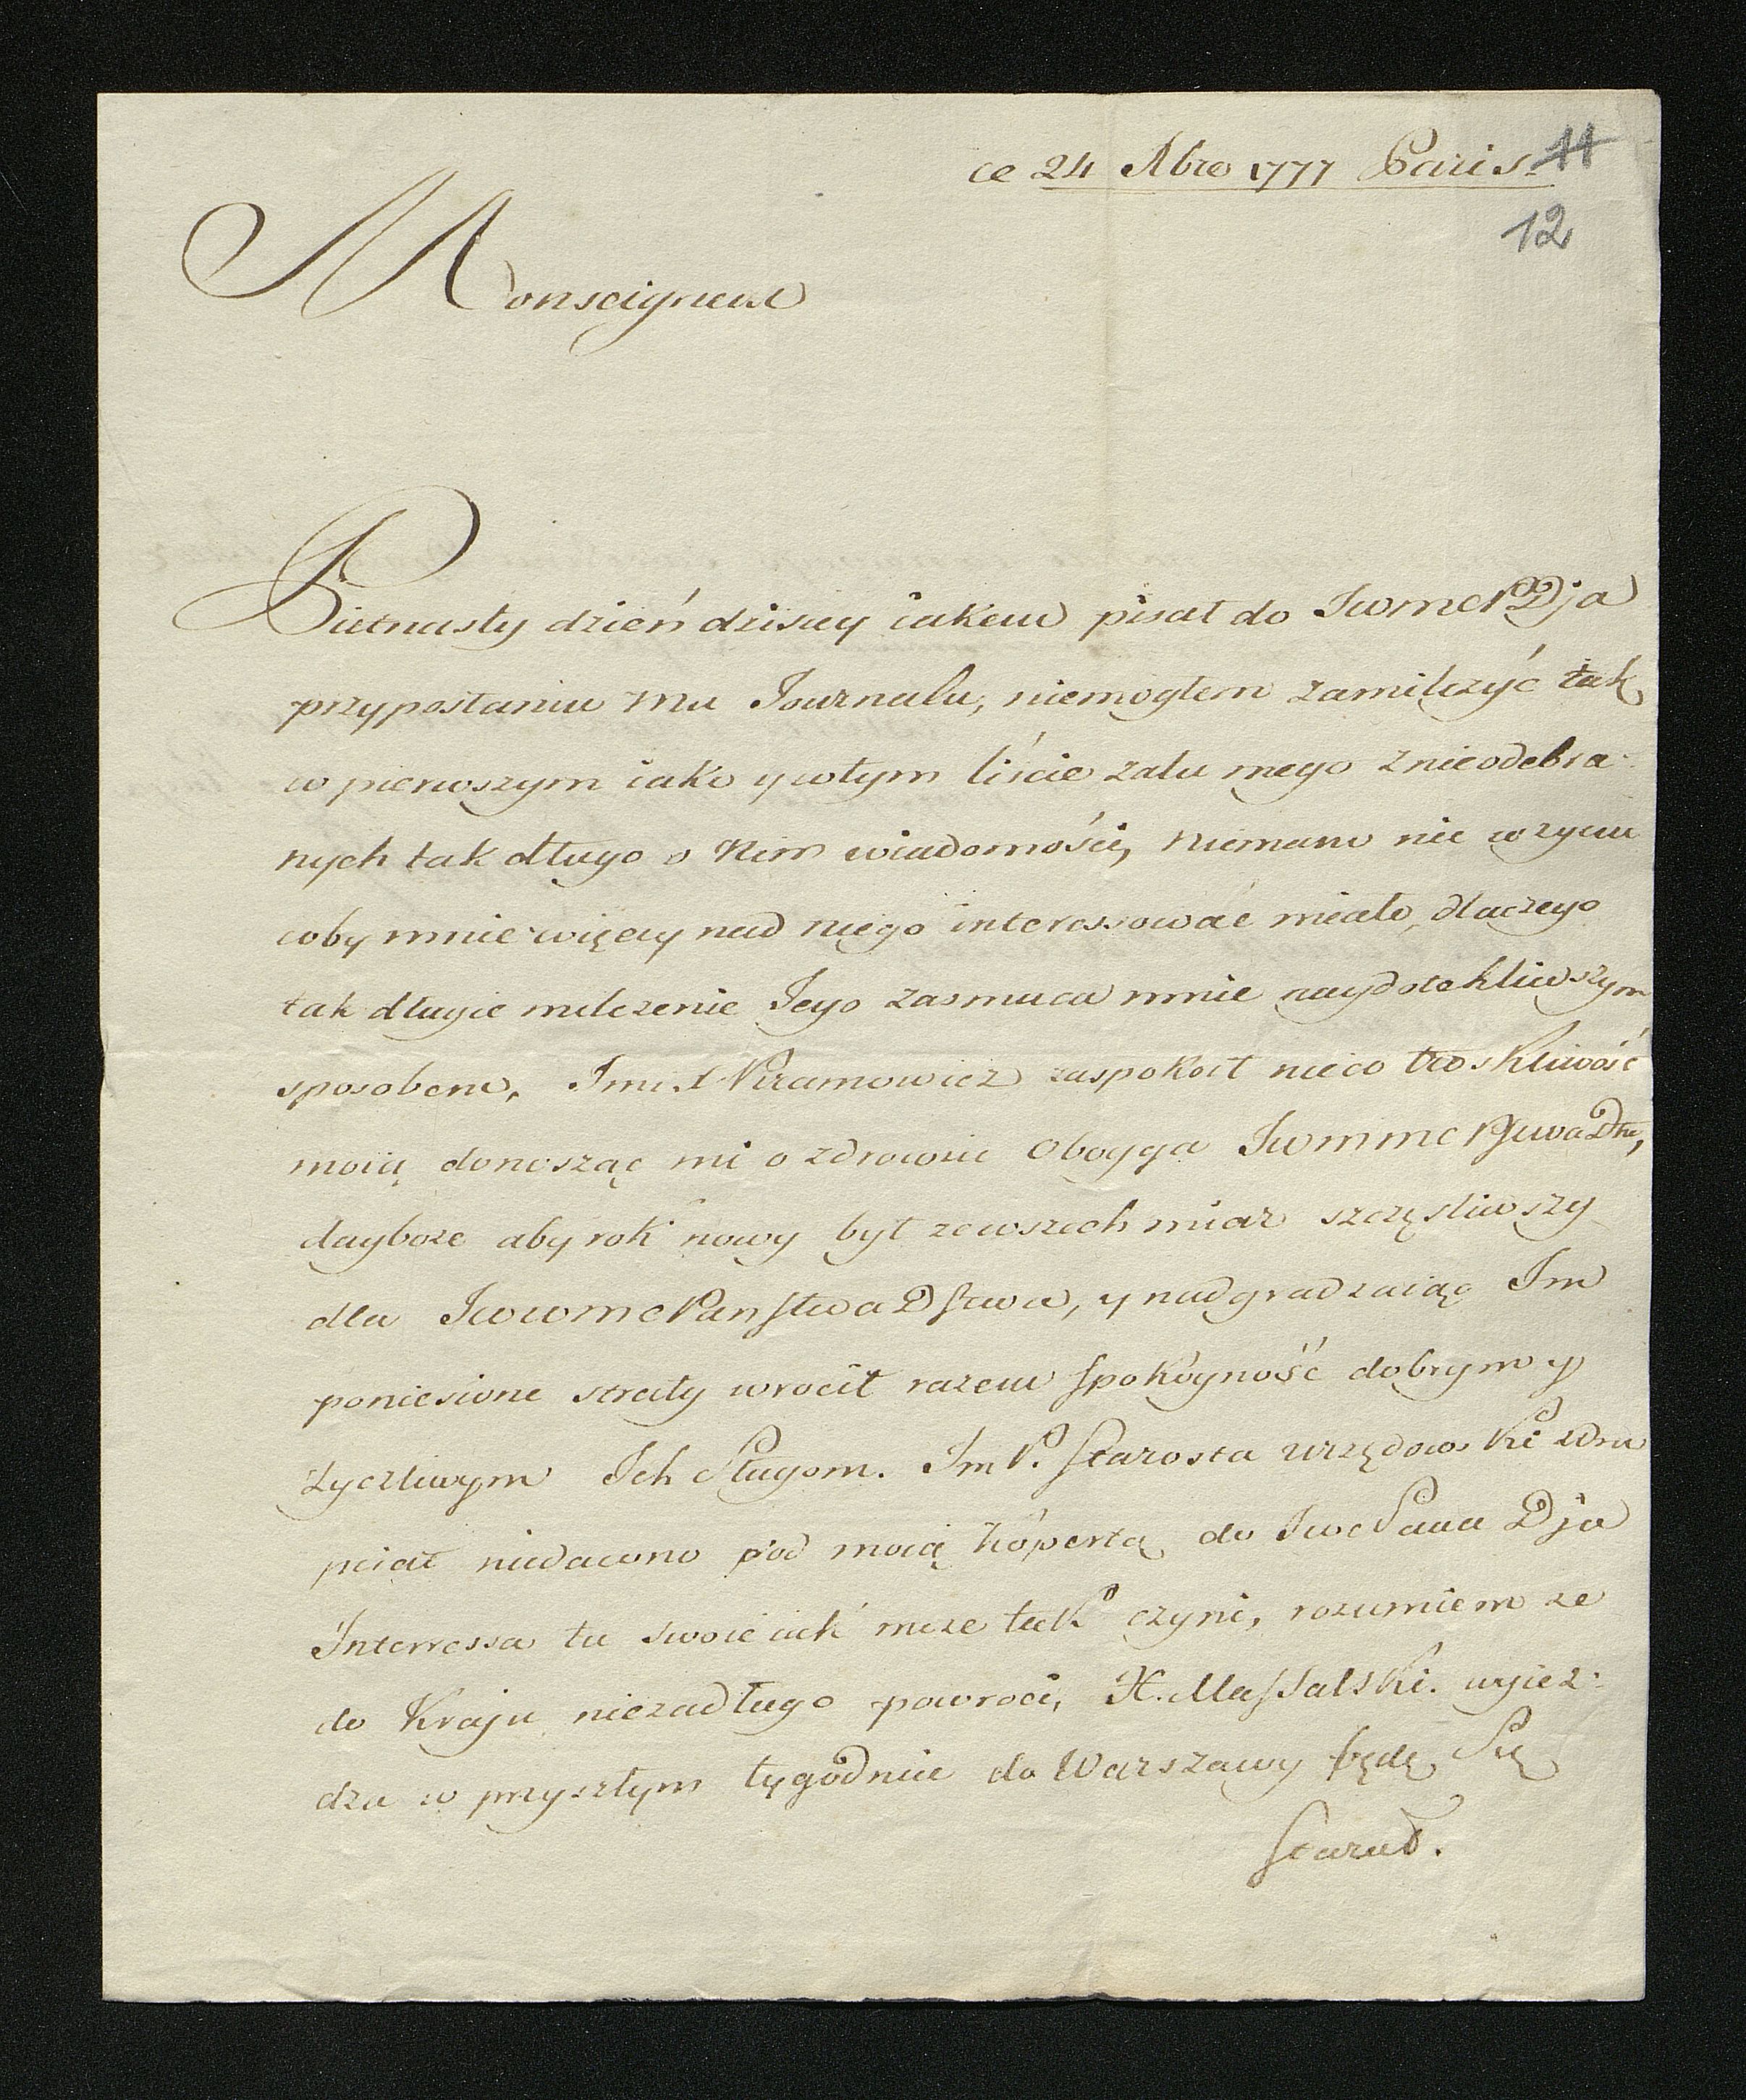 ce 24 Abre 1777 Paris.
11
12
Monseigneur
Pietnasty dzień dzisiey iakem pisał do Jwmc PDja
przyposłaniu mu Journalu, niemogłem zamilczyć tak
w pierwszym iako y wtym liście zalu mego z nieodebra:
nych tak długo o Nim wiadomości, niemam nic w zyciu
coby mnie więcey nad niego interessować miało, dlaczego
tak długie milczenie Jego zasmuca mnie naydotkliwszym
sposobem, Jmć X Piramowicz zaspokoił nieco troskliwość
moią donosząc mi o zdrowiu Oboyga
dayboze aby rok nowy był zewszech miar szczęsliwszy
dla JwwmcPanstwa Dstwa, y nadgradzaiąc Jm
poniesione straty wrocił razem spokoyność dobrym y
zyczliwym Jch Sługom. Jm P. Starosta Urzędowski
pisał niedawno pod moią kopertą do Jwc Pana Dja
Interressa tu swoie iak moze tak czyni, rozumiem ze
do Kraju niezadługo powroci, X. Massalski. wyiez:
dza w przyszłym tygodniu do Warszawy będę Się
starał.